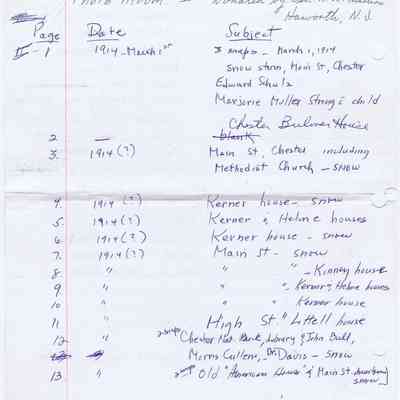 Haworth, N.J.
Page Date Subject
II - 1 1914 - March 1st 3 snaps - March 1, 1914
Snow storm, Main St, Chester
Edward Schulz
Marjorie Muller Strong & child
Chester Bulmer House
2 — blank
3. 1914 (?) Main St, Chester including
Methodist Church - snow
4. 1914 (?) Kerner house - snow
5. 1914 (?) Kerner & Helme houses
6. 1914 (?) Kerner house - snow
7. 1914 (?) Main St - snow
8. " " " - Kinney house
9 " " " - Kerner & Helme houses
10 " " " Kerner house
11 " High St." Littell house
12 " 2 snaps Chester Nat. Bank, Library & John Bull,
Morris Cullen, - Dr. Davis - snow
13 " 2 snaps Old "American House" & Main St.
snow